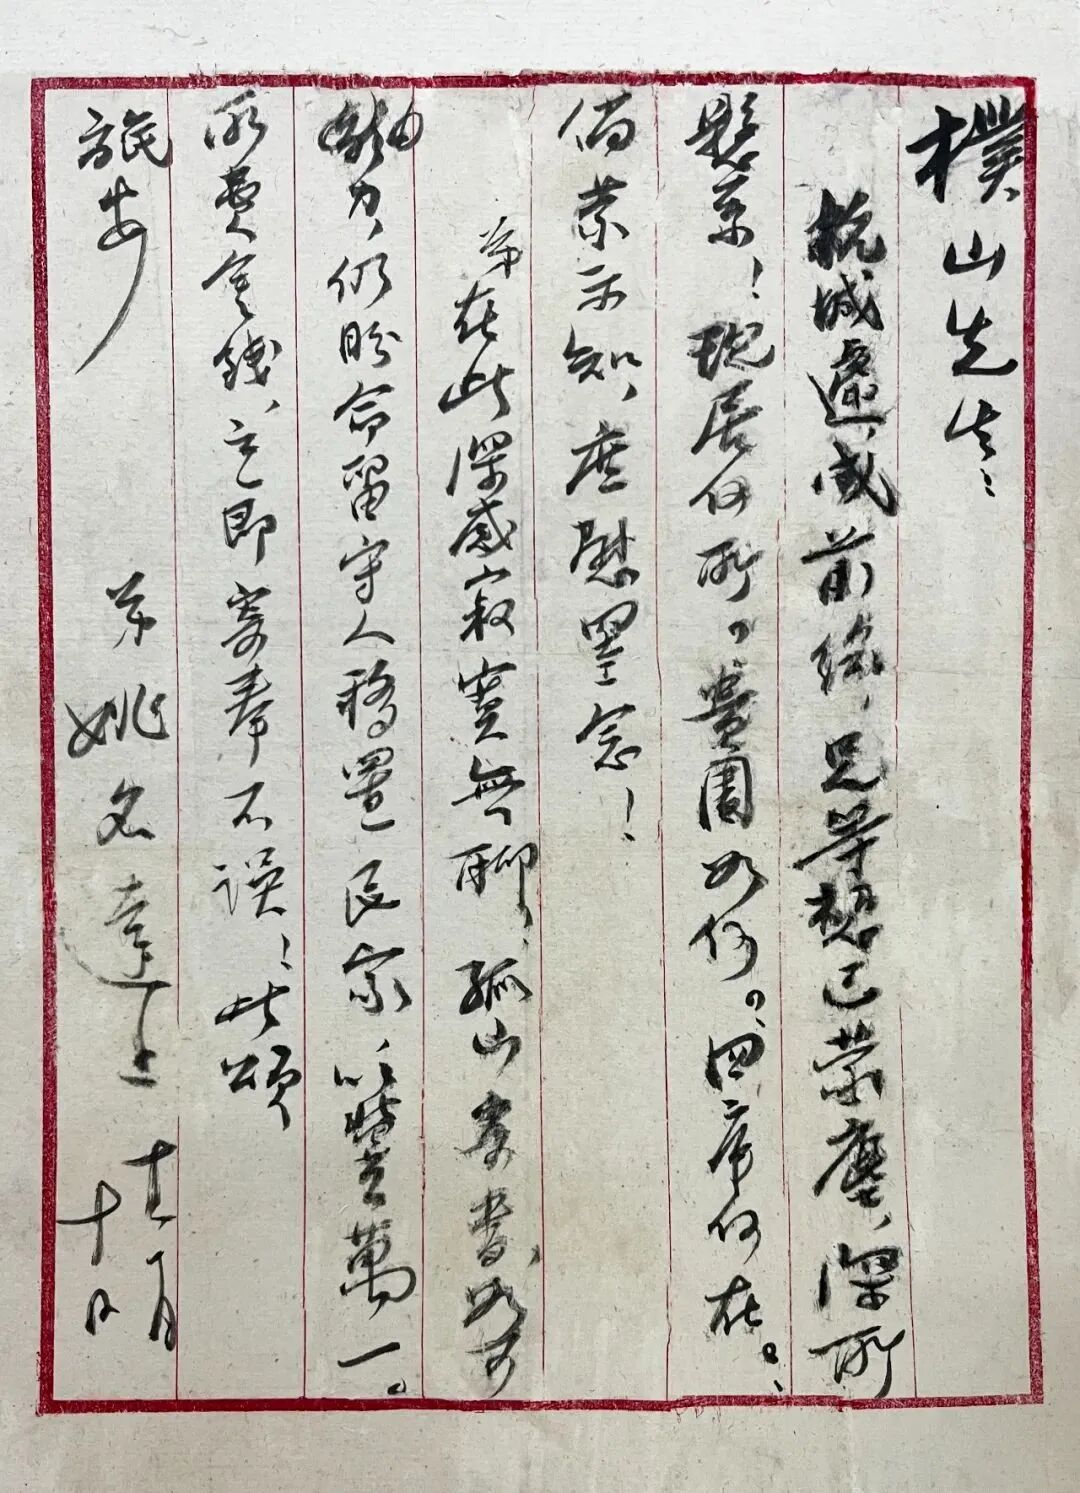 樸山先生：
杭城遽成前線，兄等想已蒙塵，深所
懸系！現居何所？貴團如何？四庫何在？
倘蒙示知，庶慰罣念！
弟在此深感寂寞無聊，孤山寄書，如可
勉力，仍盼命留守人移置民家，以監萬一。
所費金錢，立即寄奉不誤！此頌
旅安
弟姚名達上 十二月
十日